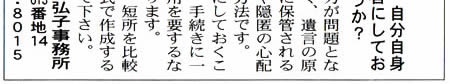 自分自身
者にしてお
うか？
方が問題とな
、遺言の原
に保管される
隠匿の心配
方法です。
にしておくこ
手続きに一
用を要するな
ります。
短所を比較
式で作成する
下さい。
弘子事務所
番地14
8015